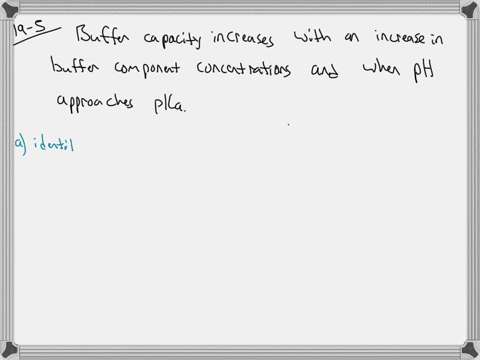 19-5 Buffer capacity increases with an increase in
buffer component concentrations and when pH
approaches pKa.
a) identil